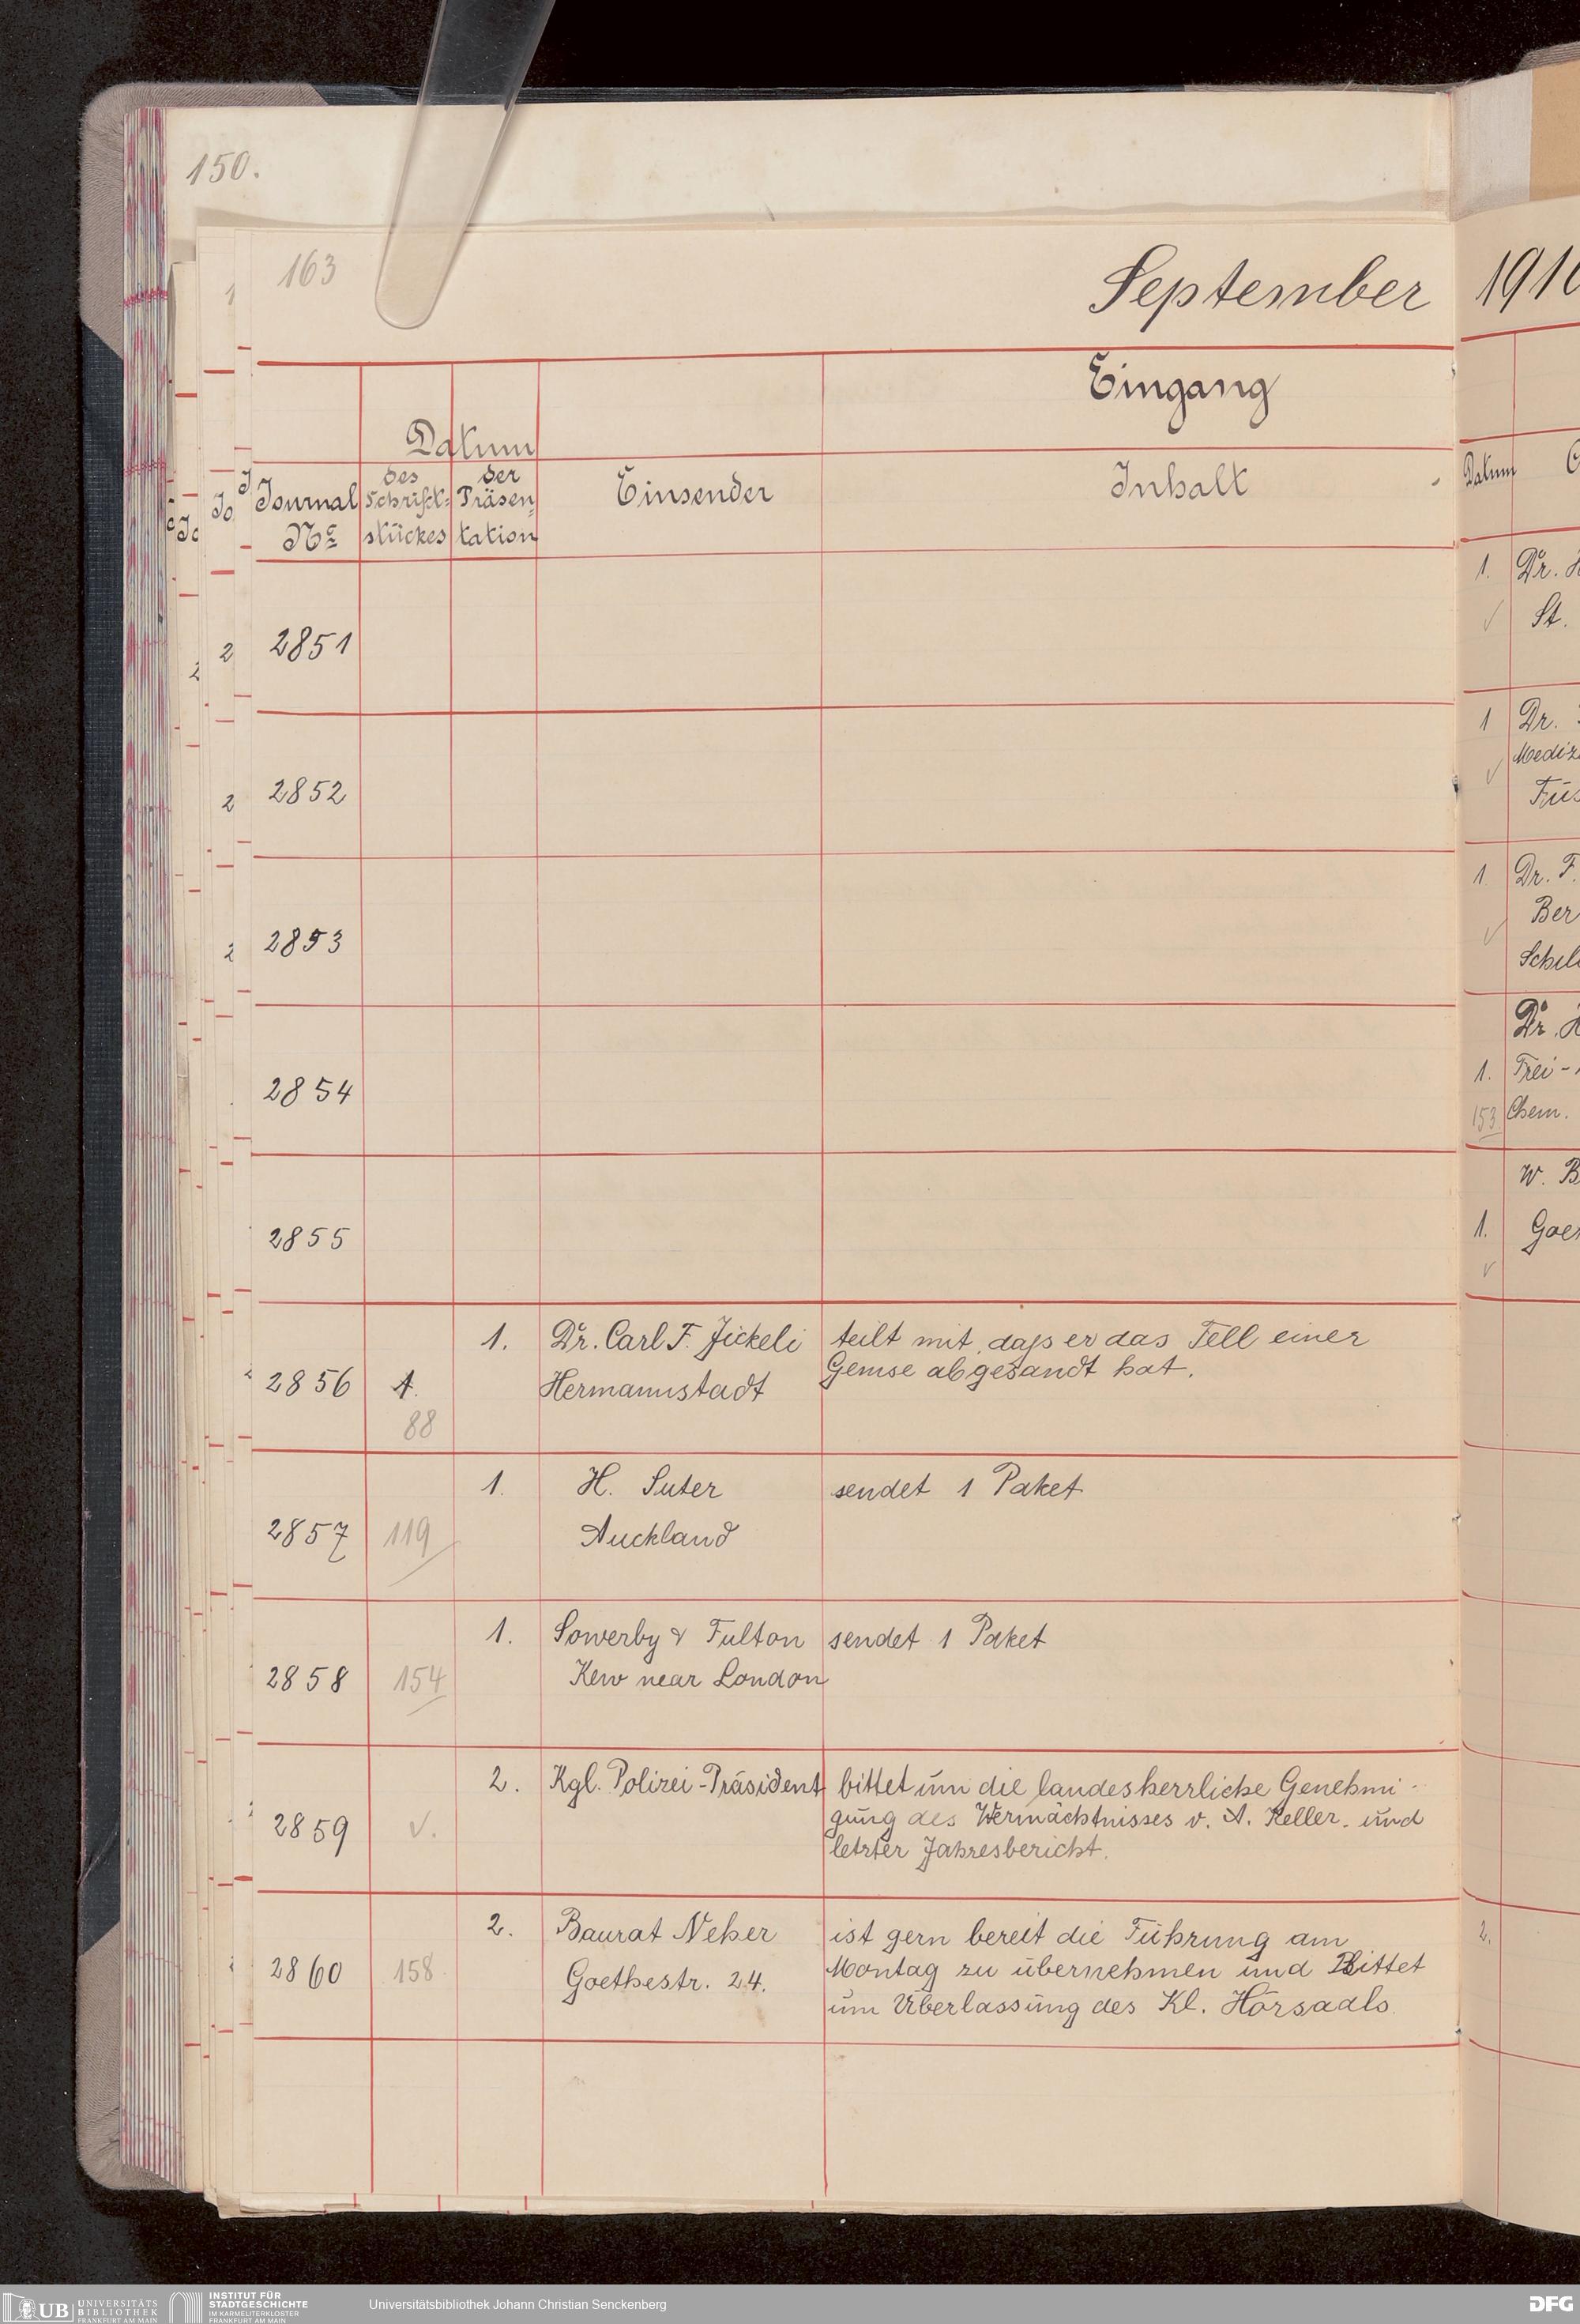 150.
163
September 1910
Eingang
Datum
Journal No
des Schrift-
stückes
der Präsen-
tation
Einsender
Inhalt
Datum
2851
1. Dr.
St.
2852
1 Dr.
Mediz
Füs
2853
1. Dr. F.
Ber
Schil
2854
Dr.
1. Frei-
153 Chem.
2855
W. B
1. Goe
2856
A.
88
1.
Dr. Carl F. Jickeli
Hermannstadt
teilt mit, daß er das Fell einer
Gemse abgesandt hat.
2857
119
1.
H. Suter
Auckland
sendet 1 Paket
2858
154
1.
Sowerby & Fulton
Kew near London
sendet 1 Paket
2859
v.
2.
Kgl. Polizei-Präsident
bittet um die landesherrliche Genehmi-
gung des Vermächtnisses v. A. Keller. und
letzter Jahresbericht.
2860
158
2.
Baurat Neher
Goethestr. 24.
ist gern bereit die Führung am
Montag zu übernehmen und bittet
um Überlassung des Kl. Hörsaals.
2.
UB UNIVERSITÄTS
BIBLIOTHEK
FRANKFURT AM MAIN
INSTITUT FÜR
STADTGESCHICHTE
IM KARMELITERKLOSTER
FRANKFURT AM MAIN
Universitätsbibliothek Johann Christian Senckenberg
DFG